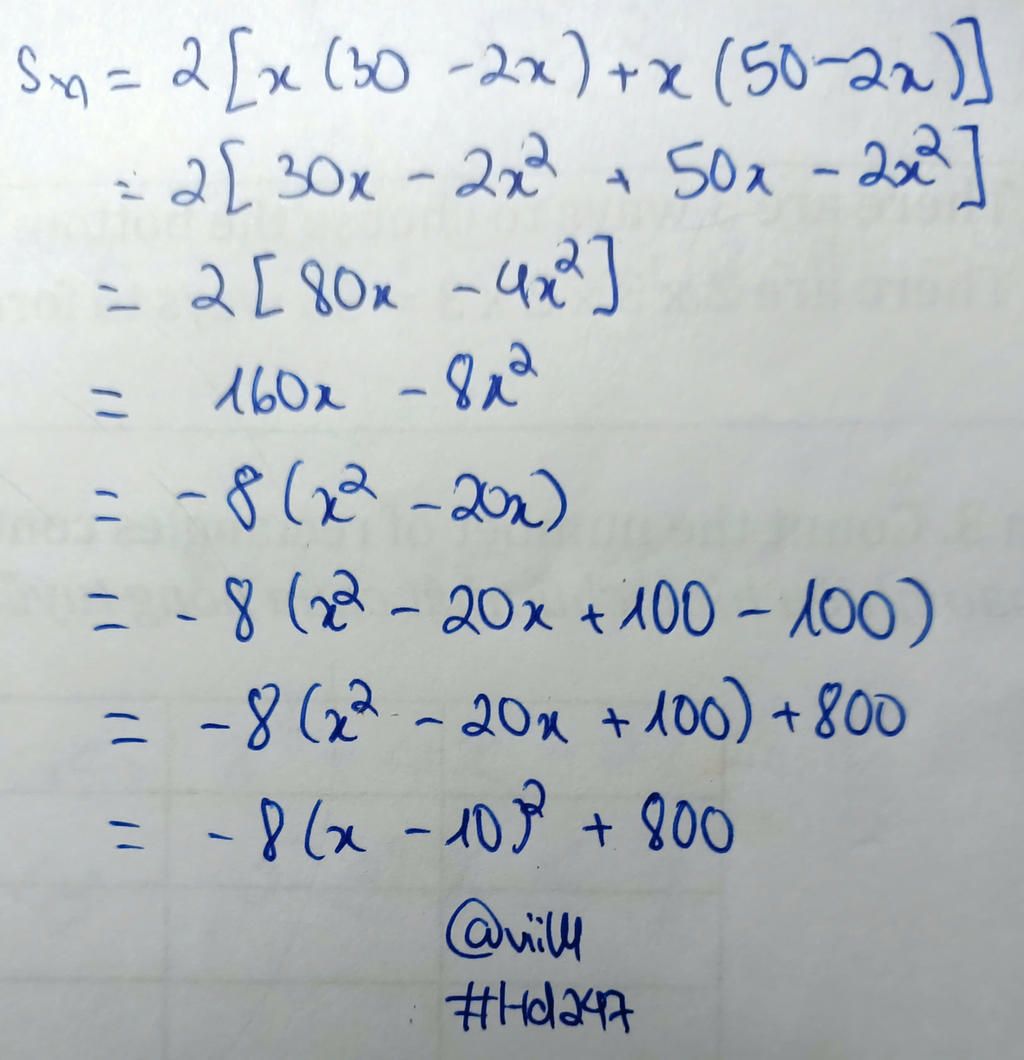 Sxq = 2[x(30 - 2x) + x(50 - 2x)]
= 2[30x - 2x² + 50x - 2x²]
= 2[80x - 4x²]
= 160x - 8x²
= -8(x² - 20x)
= -8(x² - 20x + 100 - 100)
= -8(x² - 20x + 100) + 800
= -8(x - 10)² + 800
#Hd247